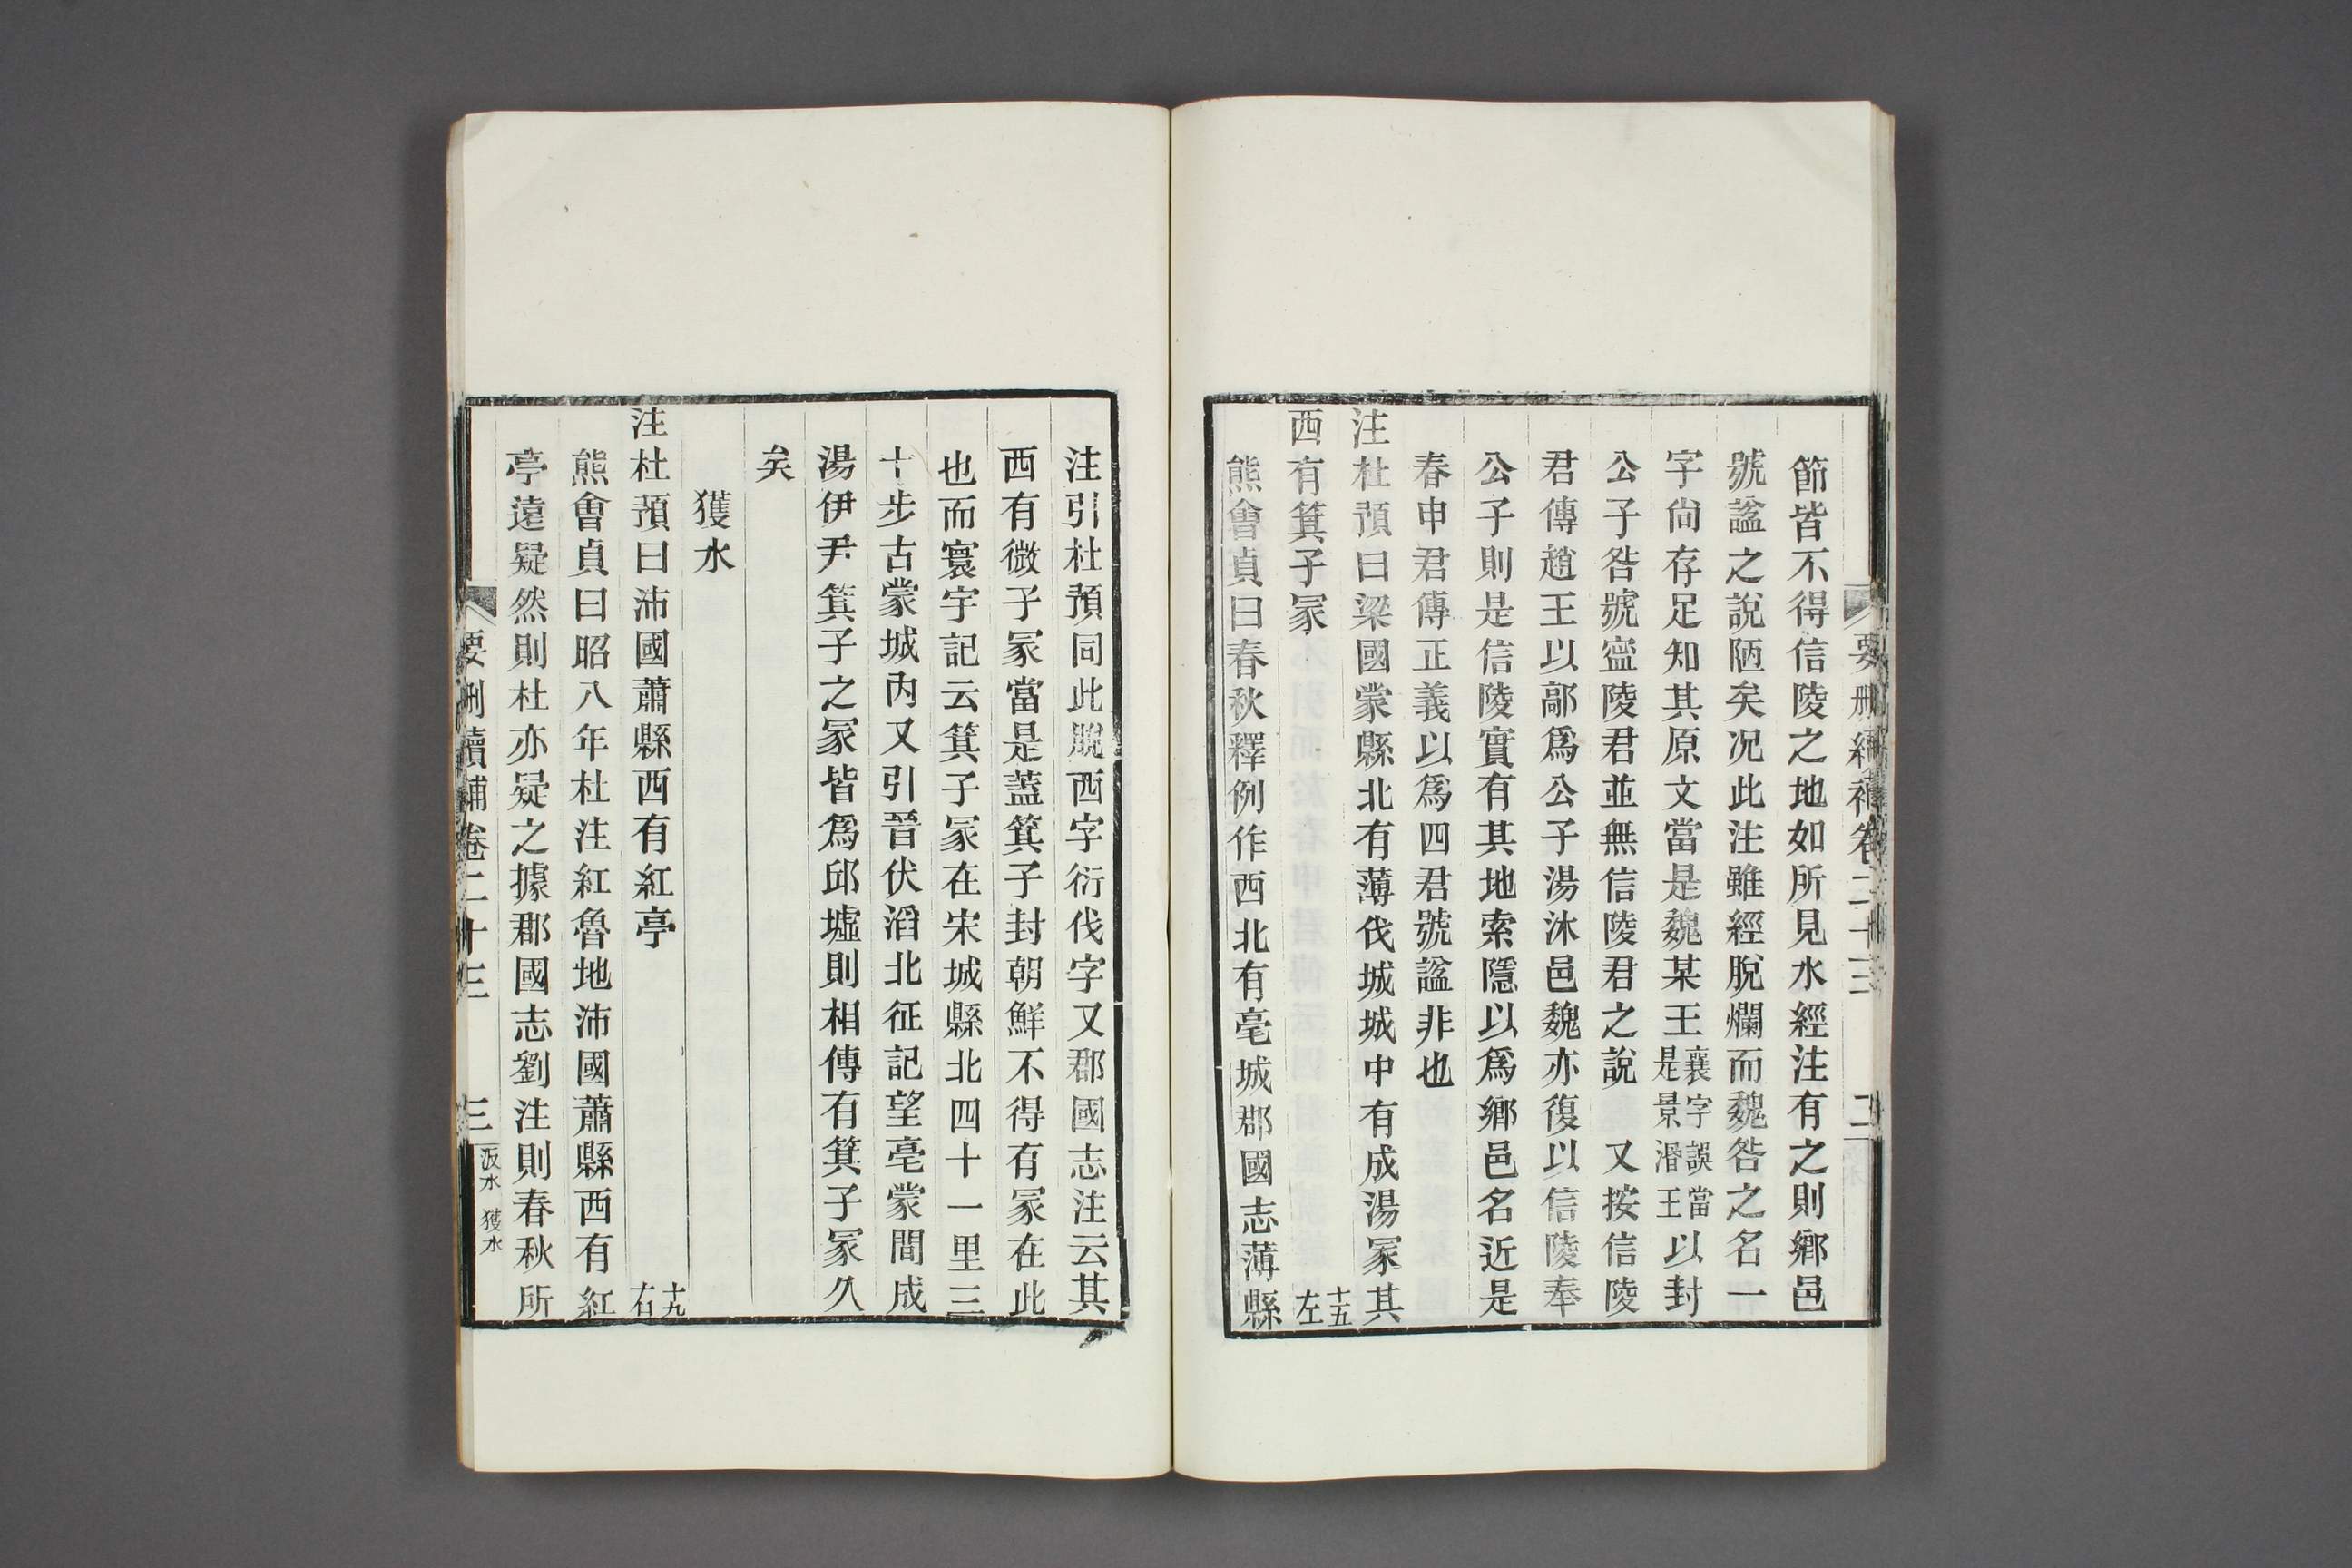 要刪續補卷二十三 二
節皆不得信陵之地如所見水經注有之則鄉邑
號諡之說陋矣况此注雖經脫爛而魏咎之名一
字尙存足知其原文當是魏某王襄字誤當是景湣王以封
公子咎號寍陵君並無信陵君之說 又按信陵
君傳趙王以鄗爲公子湯沐邑魏亦復以信陵奉
公子則是信陵實有其地索隱以爲鄉邑名近是
春申君傳正義以爲四君號諡非也
注杜預曰梁國蒙縣北有薄伐城城中有成湯冢其
西有箕子冢 十五左
熊會貞曰春秋釋例作西北有亳城郡國志薄縣
注引杜預同此脫西字衍伐字又郡國志注云其
西有微子冢當是蓋箕子封朝鮮不得有冢在此
也而寰宇記云箕子冢在宋城縣北四十一里三
十步古蒙城內又引晉伏滔北征記望亳蒙間成
湯伊尹箕子之冢皆爲邱墟則相傳有箕子冢久
矣
獲水
注杜預曰沛國蕭縣西有紅亭 十九右
熊會貞曰昭八年杜注紅魯地沛國蕭縣西有紅
亭遠疑然則杜亦疑之據郡國志劉注則春秋所
要刪續補卷二十三 三 汳水 獲水